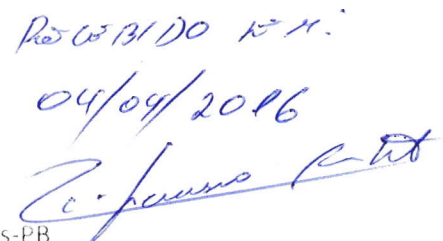 RECEBIDO EM:
04/04/2016
s-PB